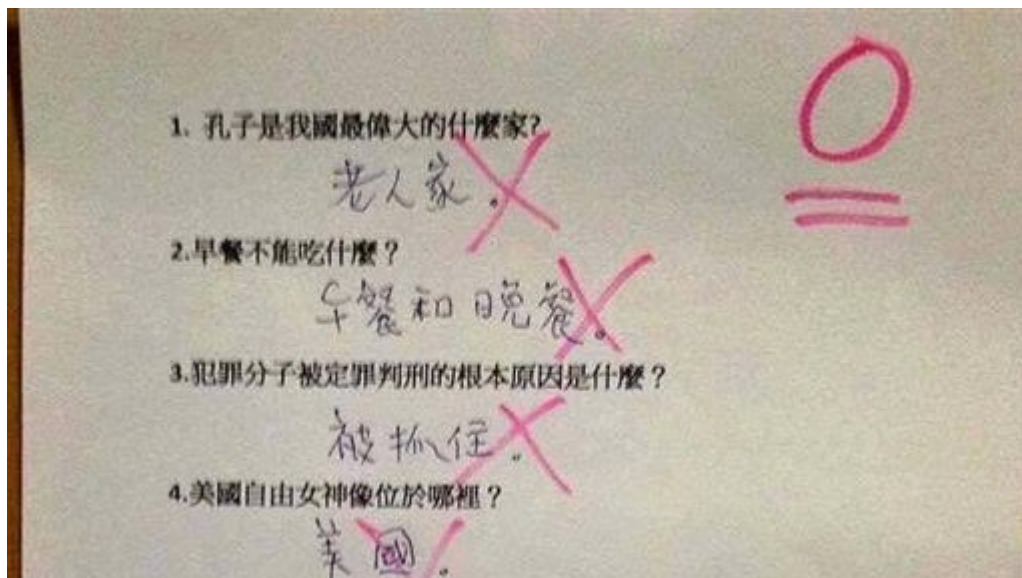 0
1、孔子是我國最偉大的什麼家?
老人家。
2.早餐不能吃什麼？
午餐和晚餐。
3.犯罪分子被定罪判刑的根本原因是什麼？
被抓住。
4.美國自由女神像位於哪裡？
美國。